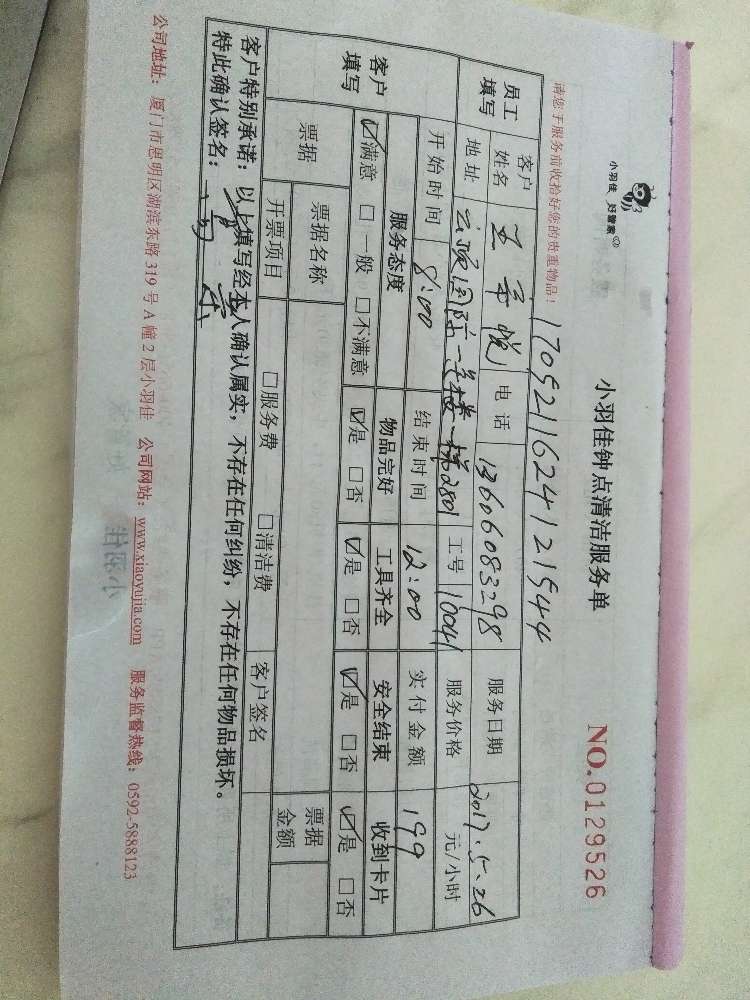 小羽佳 好管家
小羽佳钟点清洁服务单
NO.0129526
请您于服务前收拾好您的贵重物品！
1705211624121544
员工填写 客户姓名 电话 13606083298 服务日期 2017.5.26
地址 一梯2801 工号 10041 服务价格 元/小时
开始时间 8:00 结束时间 12:00 实付金额 199
客户填写 服务态度 物品完好 工具齐全 安全结束 收到卡片
☑满意 □一般 □不满意 ☑是 □否 ☑是 □否 ☑是 □否 ☑是 □否
票据 票据名称 票据金额
开票项目 □服务费 □清洁费 客户签名
客户特别承诺：以上填写经本人确认属实，不存在任何纠纷，不存在任何物品损坏。
特此确认签名：
公司地址：厦门市思明区湖滨东路319号A幢2层小羽佳 公司网站：www.xiaoyujia.com 服务监督热线：0592-5888123